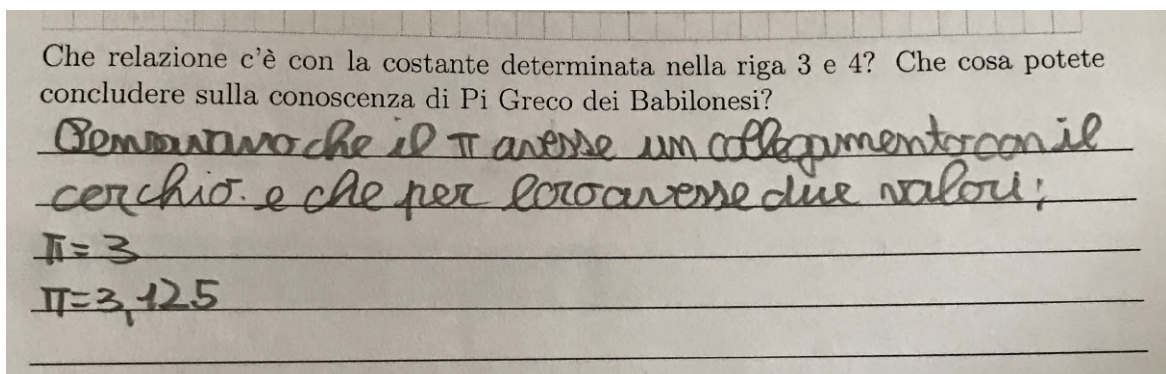 Che relazione c'è con la costante determinata nella riga 3 e 4? Che cosa potete
concludere sulla conoscenza di Pi Greco dei Babilonesi?
Pensavano che il π avesse un collegamento con il
cerchio. e che per loro avesse due valori:
π = 3
π = 3,125